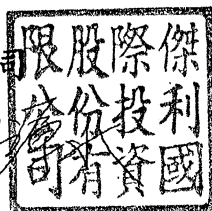 傑利國
際投資
股份有
限公司
司